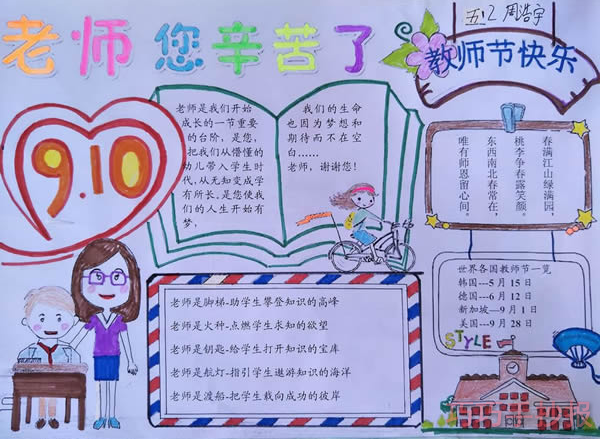 老师您辛苦了
五2 周浩宇
教师节快乐
9.10
老师是我们开始
成长的一节重要
的台阶,是您,
把我们从懵懂的
幼儿带入学生时
代,从无知变成学
有所长。是您使我
们的人生开始有
梦,
我们的生命
也因为梦想和
期待而不在空
白……
老师,谢谢您!
春满江山绿满园,
桃李争春露笑颜。
东西南北春常在,
唯有师恩留心间。
老师是脚梯-助学生攀登知识的高峰
老师是火种-点燃学生求知的欲望
老师是钥匙-给学生打开知识的宝库
老师是航灯-指引学生遨游知识的海洋
老师是渡船-把学生载向成功的彼岸
世界各国教师节一览
韩国---5月15日
德国---6月12日
新加坡---9月1日
美国---9月28日
STYLE